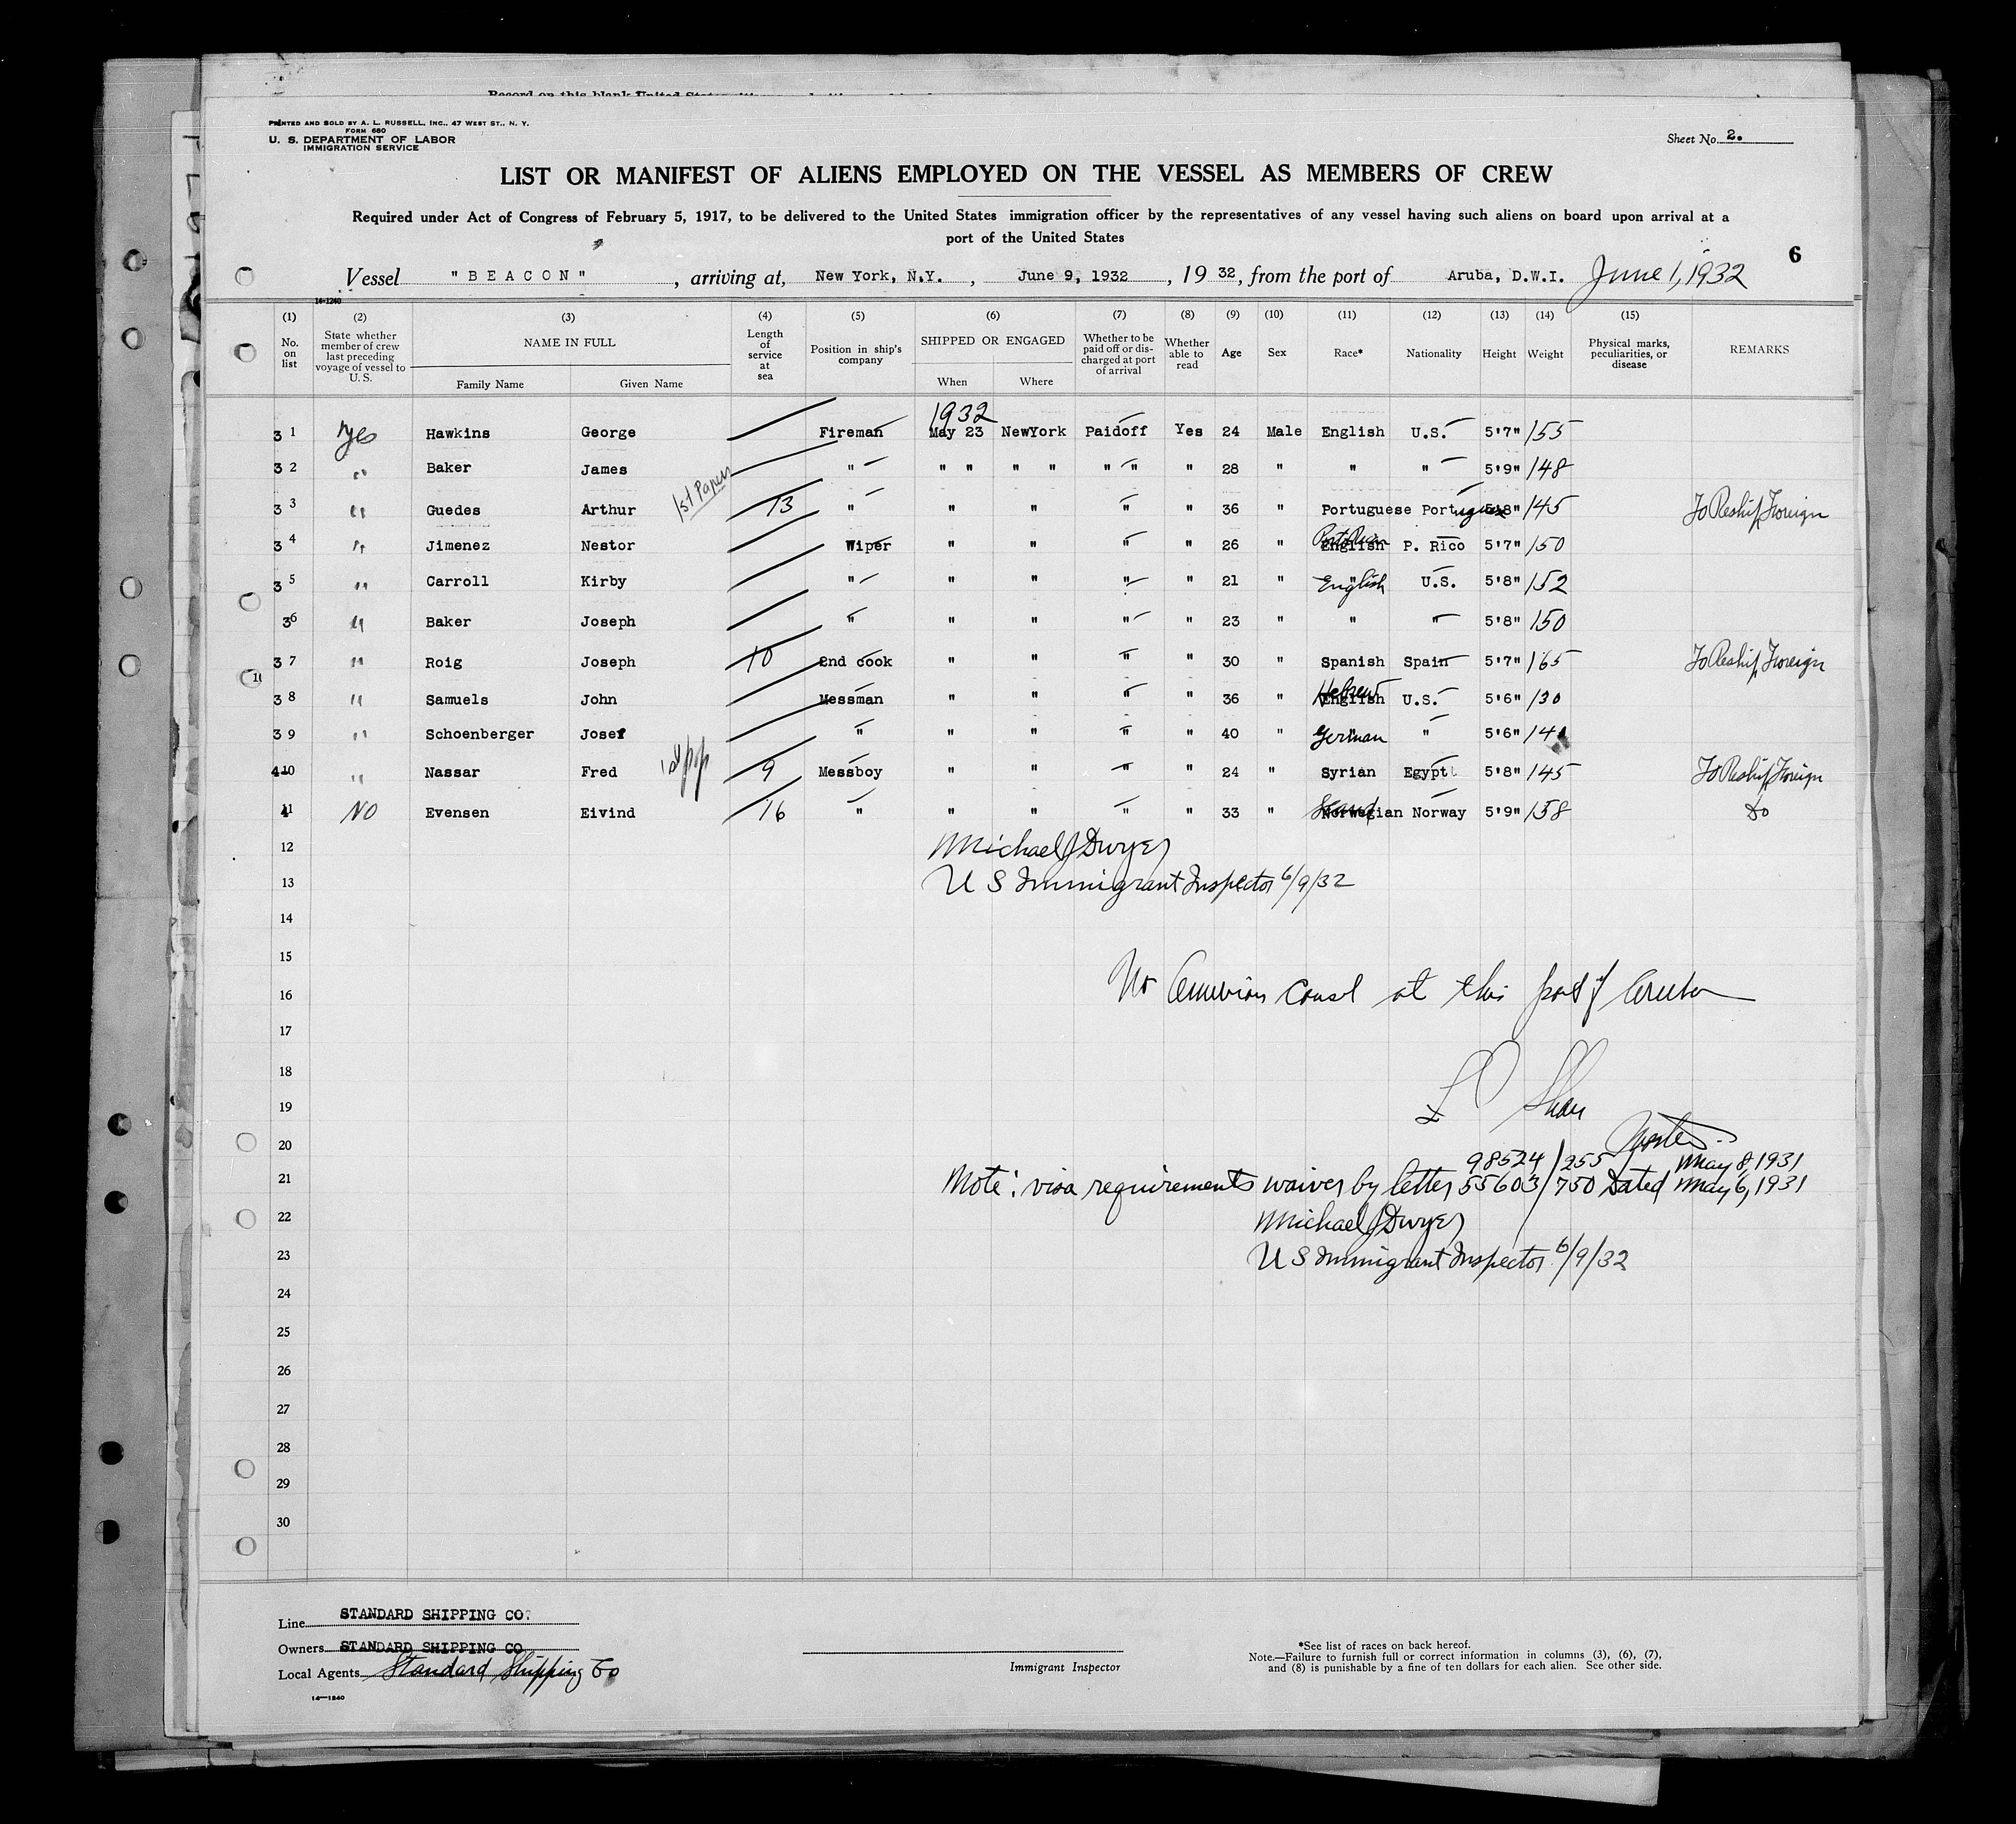 PRINTED AND SOLD BY A. L. RUSSELL, INC., 47 WEST ST., N. Y.
FORM 680
U. S. DEPARTMENT OF LABOR
IMMIGRATION SERVICE
Sheet No. 2.
LIST OR MANIFEST OF ALIENS EMPLOYED ON THE VESSEL AS MEMBERS OF CREW
Required under Act of Congress of February 5, 1917, to be delivered to the United States immigration officer by the representatives of any vessel having such aliens on board upon arrival at a
port of the United States
6
Vessel "BEACON", arriving at, New York, N.Y., June 9, 1932, 19 32, from the port of Aruba, D.W.I. June 1, 1932
14-1240
(1) (2) (3) (4) (5) (6) (7) (8) (9) (10) (11) (12) (13) (14) (15)
No. on list State whether member of crew last preceding voyage of vessel to U. S. NAME IN FULL Family Name Given Name Length of service at sea Position in ship's company SHIPPED OR ENGAGED When Where Whether to be paid off or discharged at port of arrival Whether able to read Age Sex Race* Nationality Height Weight Physical marks, peculiarities, or disease REMARKS
1932
3 1 Yes Hawkins George Fireman May 23 NewYork Paidoff Yes 24 Male English U.S. 5'7" 155
3 2 " Baker James " " " " " " " " 28 " " " 5'9" 148
3 3 " Guedes Arthur 1st Papers 13 " " " " " 36 " Portuguese Portuguese 5'8" 145 To Reship Foreign
3 4 " Jimenez Nestor Wiper " " " " 26 " English Porto Rican P. Rico 5'7" 150
3 5 " Carroll Kirby " " " " " 21 " English U.S. 5'8" 152
3 6 " Baker Joseph " " " " " 23 " " " 5'8" 150
3 7 " Roig Joseph 10 2nd cook " " " " 30 " Spanish Spain 5'7" 165 To Reship Foreign
3 8 " Samuels John Messman " " " " 36 " English Hebrew U.S. 5'6" 130
3 9 " Schoenberger Josef " " " " " 40 " German " 5'6" 14
4 10 " Nassar Fred 1st pp 9 Messboy " " " " 24 " Syrian Egypt 5'8" 145 To Reship Foreign
4 11 NO Evensen Eivind 16 " " " " " 33 " Norwegian Scand Norway 5'9" 158 Do
12 Michael J Dwyer
13 U S Immigrant Inspector 6/9/32
14
15
16 No American Consul at this port of Aruba
17
18
19
20 Master
98524/255 May 8, 1931
21 Note: visa requirements waiver by letter 55603/750 Dated May 6, 1931
22 Michael J Dwyer
23 U S Immigrant Inspector 6/9/32
24
25
26
27
28
29
30
Line STANDARD SHIPPING CO.
Owners STANDARD SHIPPING CO
Local Agents Standard Shipping Co
14—1240
Immigrant Inspector
*See list of races on back hereof.
Note.—Failure to furnish full or correct information in columns (3), (6), (7),
and (8) is punishable by a fine of ten dollars for each alien. See other side.